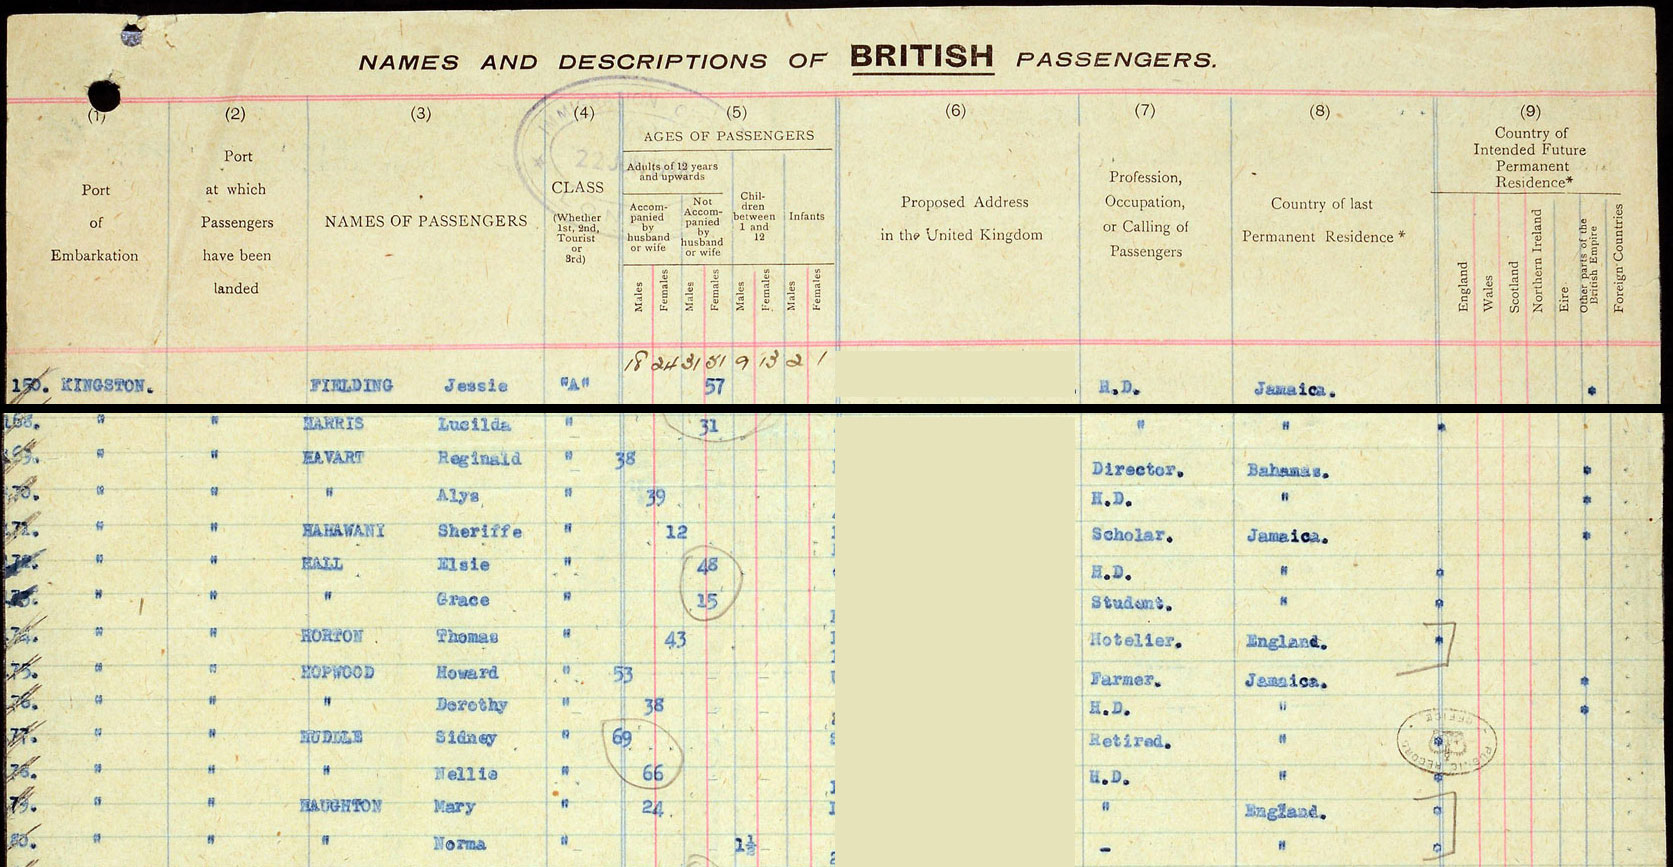 NAMES AND DESCRIPTIONS OF BRITISH PASSENGERS.
(1) (2) (3) (4) (5) (6) (7) (8) (9)
Port of Embarkation
Port at which Passengers have been landed
NAMES OF PASSENGERS
CLASS (Whether 1st, 2nd, Tourist or 3rd)
AGES OF PASSENGERS
Adults of 12 years and upwards
Accompanied by husband or wife
Not Accompanied by husband or wife
Children between 1 and 12
Infants
Males Females Males Females Males Females Males Females
Proposed Address in the United Kingdom
Profession, Occupation, or Calling of Passengers
Country of last Permanent Residence*
Country of Intended Future Permanent Residence*
England Wales Scotland Northern Ireland Eire Other parts of the British Empire Foreign Countries
18 24 31 51 9 13 2 1
150. KINGSTON. FIELDING Jessie "A" 57 H.D. Jamaica. *
168. " " HARRIS Lucilda " 31 " " *
" " HAVART Reginald " 38 Director. Bahamas. *
" " " Alys " 39 H.D. " *
71. " " HAHAWANI Sheriffe " 12 Scholar. Jamaica. *
" " HALL Elsie " 48 H.D. " *
" " " Grace " 15 Student. " *
74. " " HORTON Thomas " 43 Hotelier. England. *
75. " " HOPWOOD Howard " 53 Farmer. Jamaica. *
76. " " " Dorothy " 38 H.D. " *
77. " " HUDDLE Sidney " 69 Retired. " *
78. " " " Nellie " 66 H.D. " *
79. " " HAUGHTON Mary " 24 " England. *
80. " " " Norma " 1½ - " *
PUBLIC RECORD OFFICE